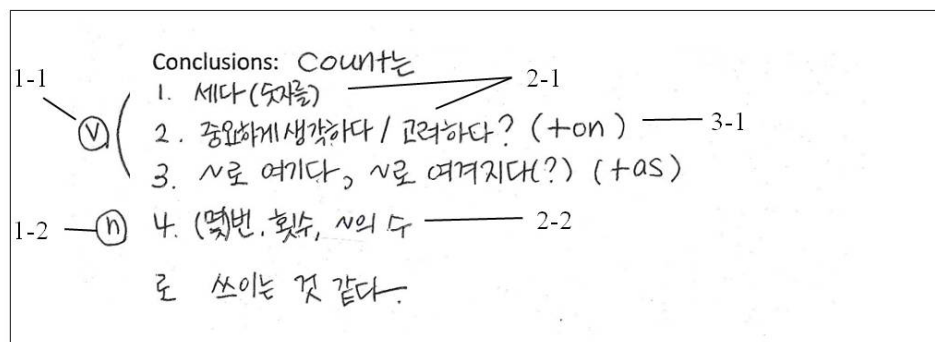 Conclusions: Count는
1-1
1. 세다 (숫자를)
2-1
ⓥ
2. 중요하게 생각하다 / 고려하다? (+on)
3-1
3. ~로 여기다, ~로 여겨지다(?) (+as)
1-2
ⓝ 4. (몇)번, 횟수, ~의 수
2-2
로 쓰이는 것 같다.